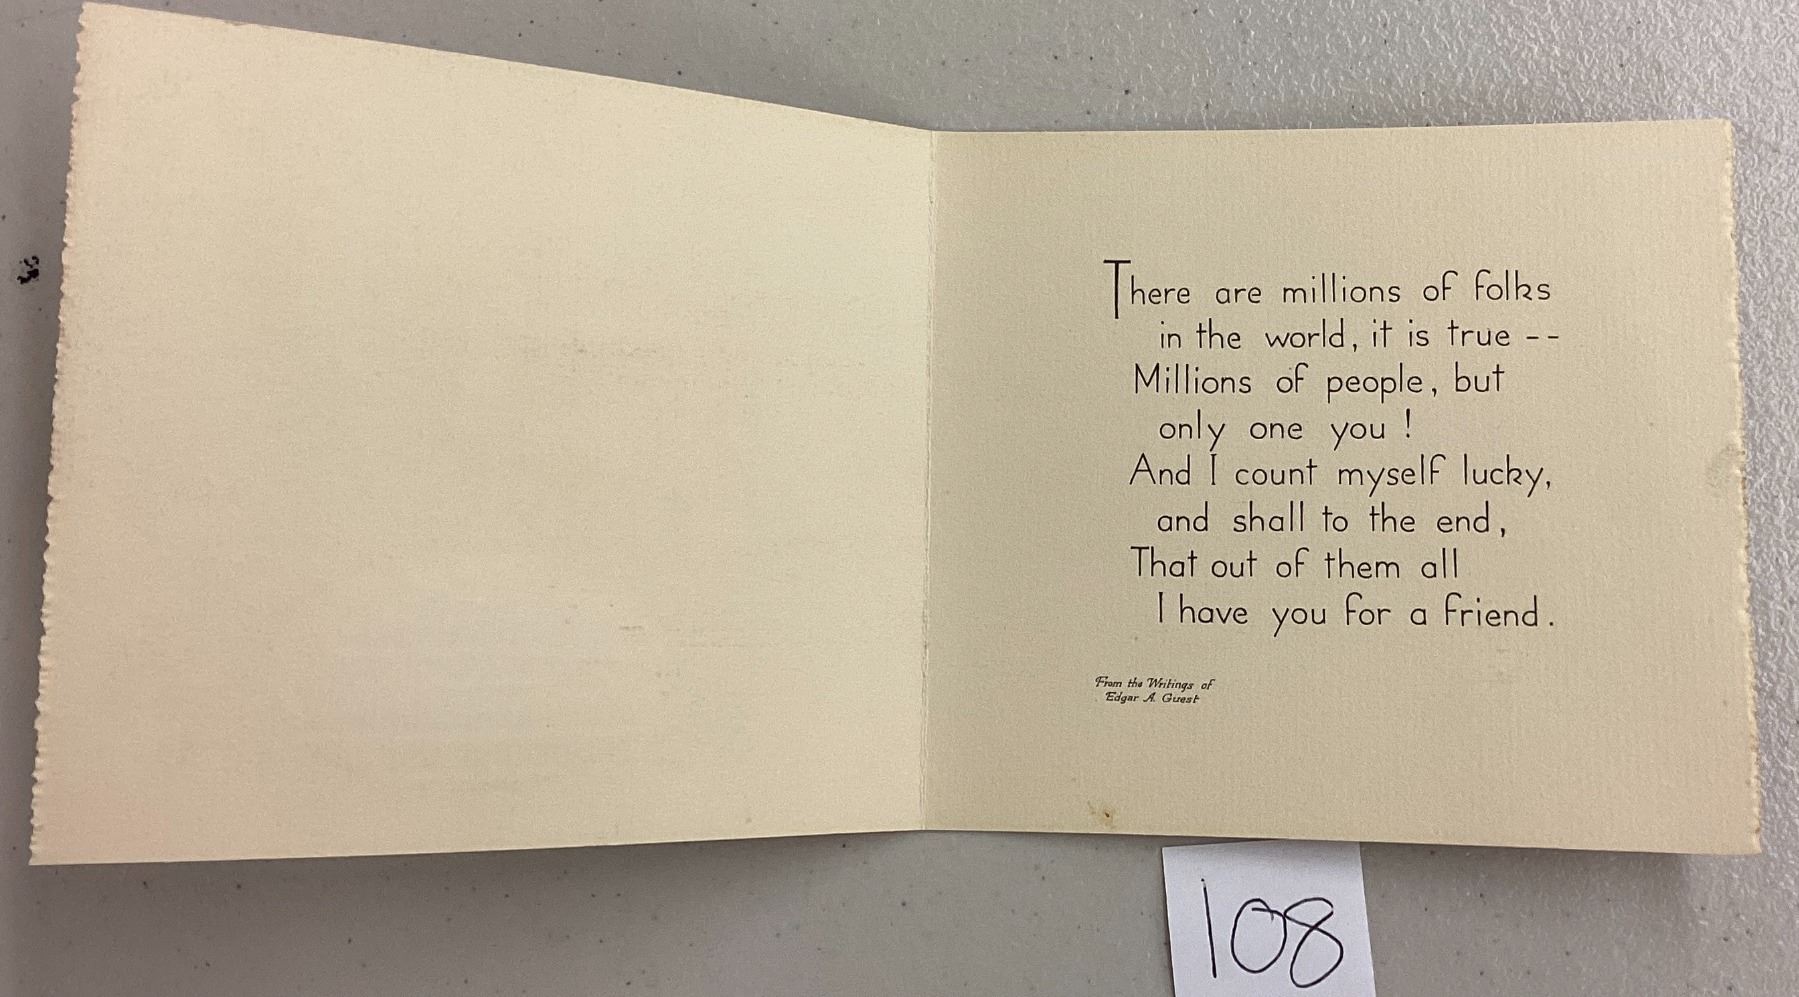 There are millions of folks
in the world, it is true --
Millions of people, but
only one you !
And I count myself lucky,
and shall to the end,
That out of them all
I have you for a friend.
From the Writings of
Edgar A. Guest
108